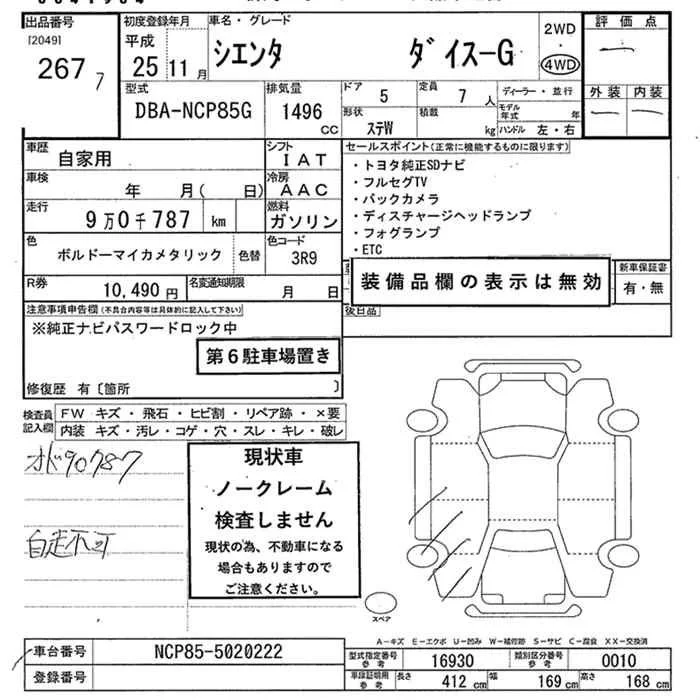 出品番号
[2049]
267 7
初度登録年月
平成
25 11月
車名・グレード
シエンタ ダイス-G
2WD
・
4WD
評価点
一
外装 内装
一 一
型式
DBA-NCP85G
排気量
1496
CC
ドア 5
定員 7人
形状 ステW
積載 kg
ディーラー・並行
モデル年式 年
ハンドル 左・右
車歴 自家用
シフト IAT
車検 年 月( 日)
冷房 AAC
走行 9万0千787 km
燃料 ガソリン
色 ボルドーマイカメタリック 色替
色コード 3R9
R券 10,490円
名変通知期限 月 日
セールスポイント(正常に機能するものに限ります)
・トヨタ純正SDナビ
・フルセグTV
・バックカメラ
・ディスチャージヘッドランプ
・フォグランプ
・ETC
装備品欄の表示は無効
新車保証書
有・無
後日品
注意事項申告欄(不具合内容等は具体的に記入して下さい)
※純正ナビパスワードロック中
第6駐車場置き
修復歴 有〔箇所 〕
検査員記入欄
FW キズ・飛石・ヒビ割・リペア跡・×要
内装 キズ・汚レ・コゲ・穴・スレ・キレ・破レ
オド90787
自走不可
現状車
ノークレーム
検査しません
現状の為、不動車になる
場合もありますので
ご注意ください。
スペア
A-キズ E-エクボ U-凹み W-補修跡 S-サビ C-腐食 XX-交換済
車台番号 NCP85-5020222
登録番号
型式指定番号参考 16930
類別区分番号参考 0010
車庫証明用参考 長さ 412 cm 幅 169 cm 高さ 168 cm